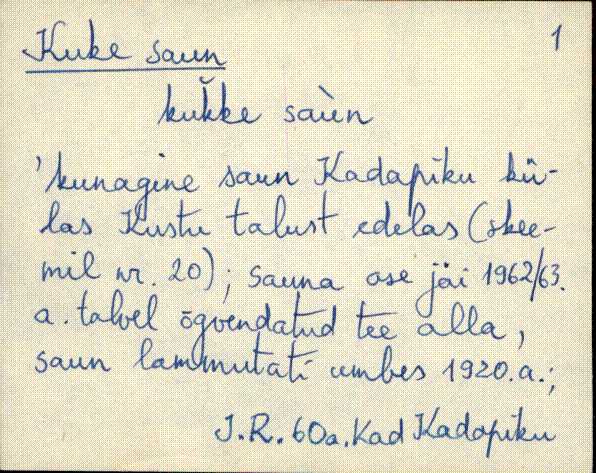 Kuke saun 1
kuk̆ke saùn
'kunagine saun Kadapiku kü-
las Kustu talust edelas (skee-
mil nr. 20); sauna ase jäi 1962/63.
a. talvel õgvendatud tee alla,
saun lammutati umbes 1920.a.;
J.R. 60a. Kad Kadapiku